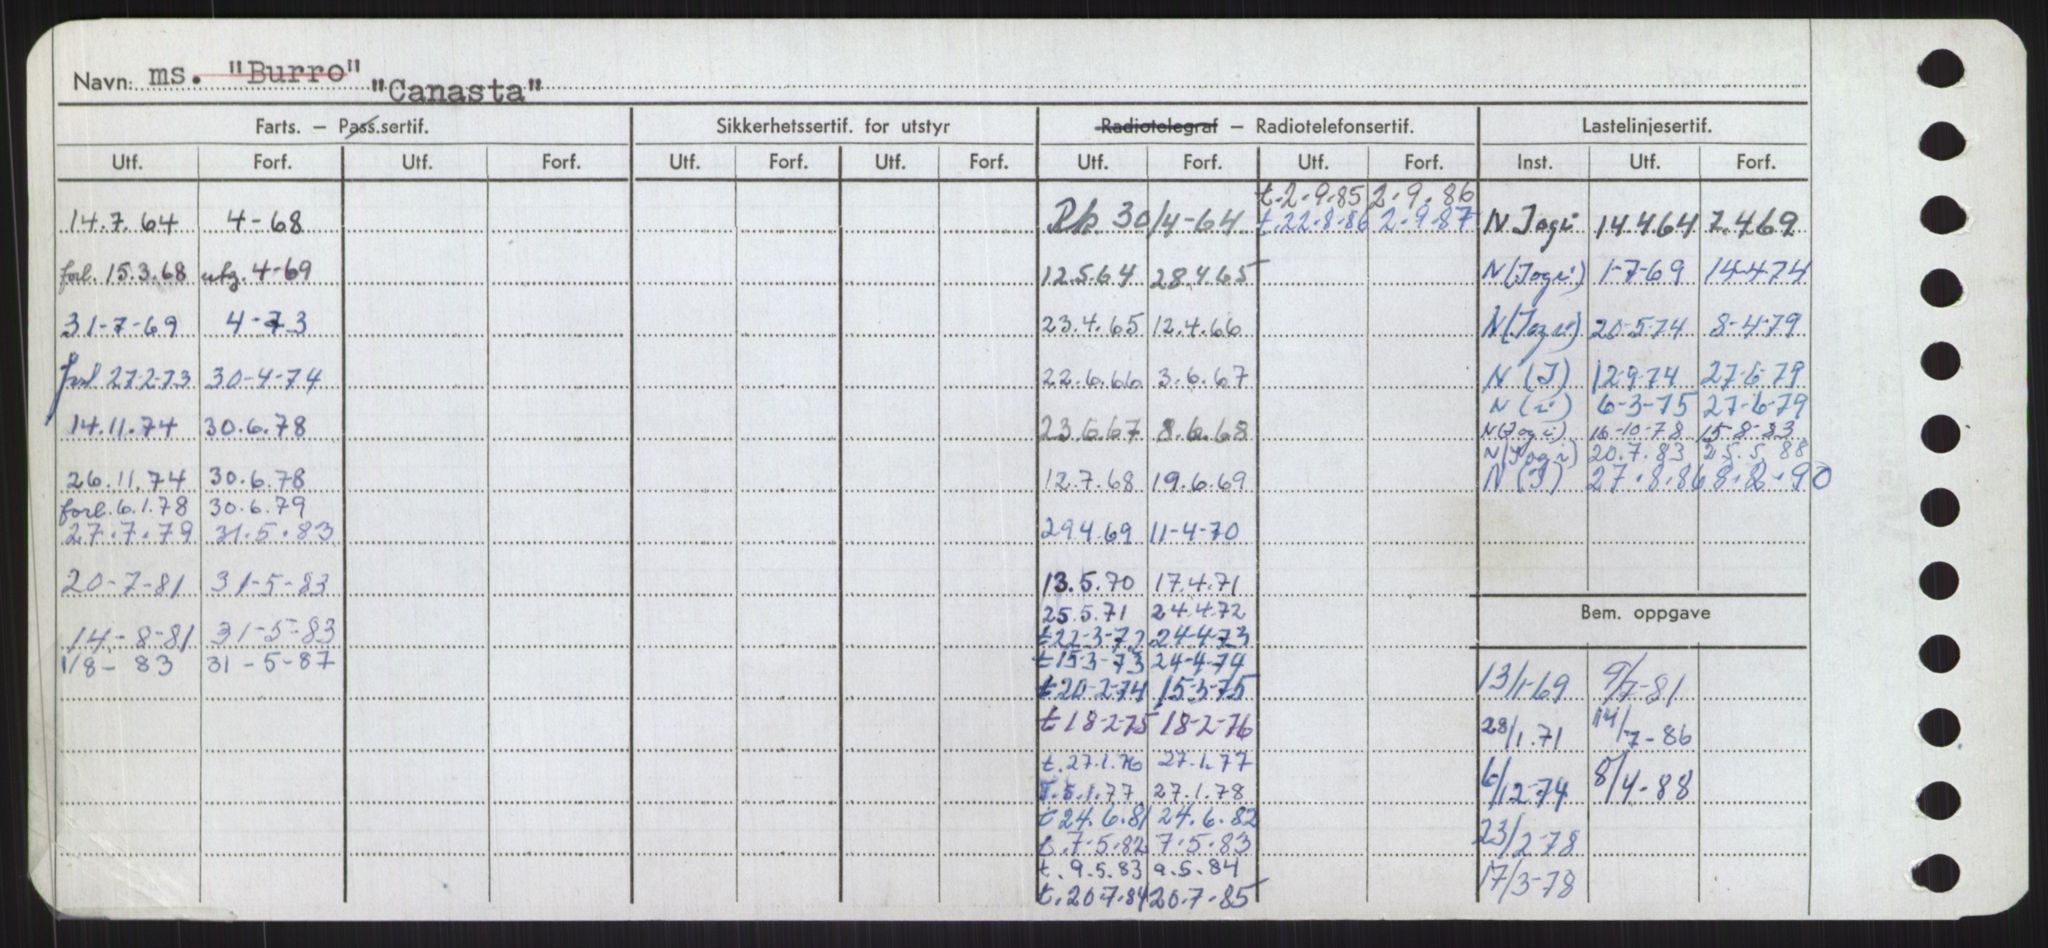 Navn: ms. "Burro"
"Canasta"
Farts. – Pass.sertif. Sikkerhetssertif. for utstyr Radiotelegraf – Radiotelefonsertif. Lastelinjesertif.
Utf. Forf. Utf. Forf. Utf. Forf. Utf. Forf. Utf. Forf. Utf. Forf. Inst. Utf. Forf.
t.2.9.85 2.9.86
14.7.64 4-68 Rk. 30/4-64 t.22.8.86 2-9-87 N Jogi 14.4.64 7.4.69
forl. 15.3.68 utg. 4-69 12.5.64 28.4.65 N(Jogi) 1-7-69 14-4-74
31-7-69 4-73 23.4.65 12.4.66 N(Jogi) 20-5-74 8-4-79
forl 27-2-73 30-4-74 22.6.66 3.6.67 N (J) 12-9-74 27-6-79
N (i) 6-3-75 27-6-79
14.11.74 30.6.78 23.6.67 8.6.68 N(Jogi) 16-10-78 15-8-83
N(Jogi) 20.7.83 25.5.88
26.11.74 30.6.78 12.7.68 19.6.69 N (J) 27.8.86 8.2.90
forl. 6.1.78 30.6.79
27.7.79 31.5.83 29.4.69 11-4-70
20-7-81 31-5-83 13.5.70 17.4.71
25.5.71 24.4.72 Bem. oppgave
14-8-81 31-5-83 t22-3-72 24-4-73
1/8-83 31-5-87 t15-3-73 24-4-74
t20-2-74 15-3-75 13/1-69 9/7-81
t18-2-75 18-2-76 28/1.71 14/7-86
t.27.1.76 27.1.77
T.5.1.77 27.1.78 6/12-74 8/4-88
t 24.6.81 24.6.82
t.7-5.82 7.5.83 23/2-78
t.9.5.83 9.5.84 17/3-78
t.20.7.84 20.7.85